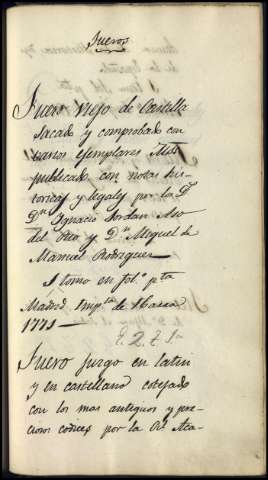 Fueros
Fuero viejo de Castilla
sacado y comprobado con
varios exemplares Mss
publicado con notas his-
toricas y legales por los Ds
Dn Ignacio Jordan Aso
del Rio y Dn Miguel de
Manuel Rodriguez
1 tomo en fol.º pta
Madrid Impta de Ibarra
1771 —
E. 2. t. 1a
Fuero Juzgo en latin
y en castellano cotejado
con los mas antiguos y pre-
ciosos codices por la Rl Aca-